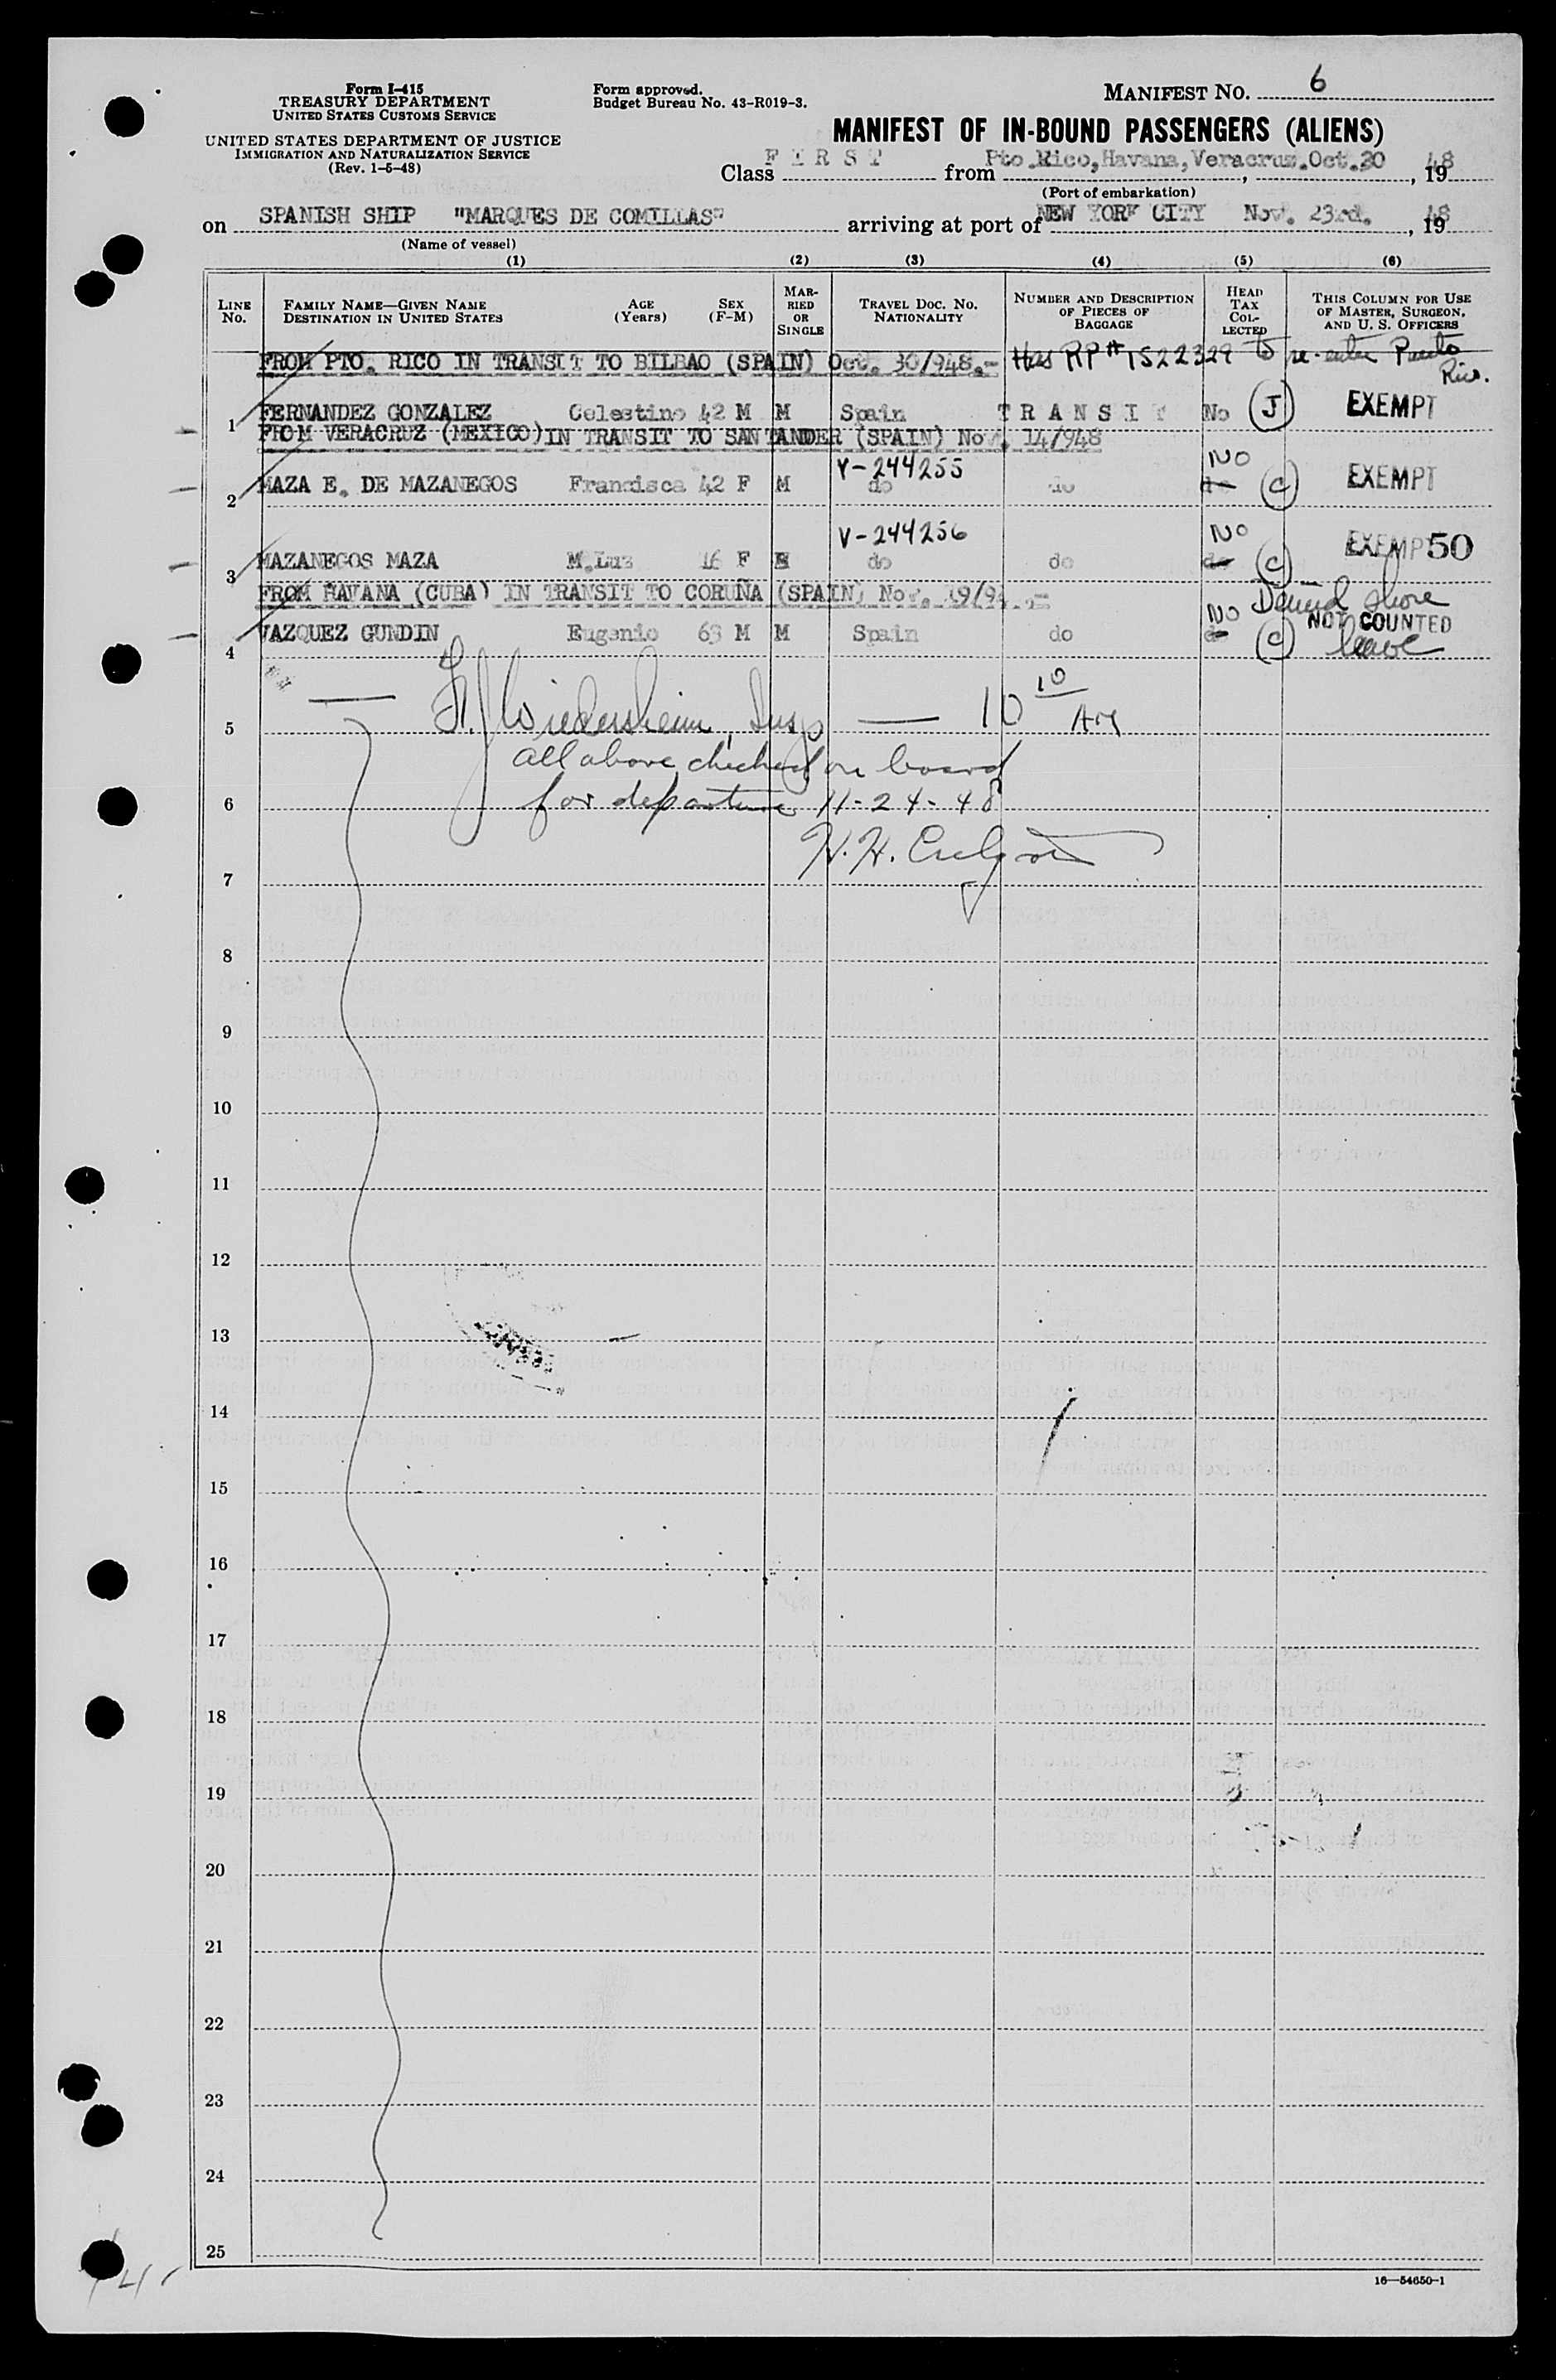 Form I-415
TREASURY DEPARTMENT
UNITED STATES CUSTOMS SERVICE
UNITED STATES DEPARTMENT OF JUSTICE
IMMIGRATION AND NATURALIZATION SERVICE
(Rev. 1-5-48)
Form approved.
Budget Bureau No. 43-R019-3.
MANIFEST NO. 6
MANIFEST OF IN-BOUND PASSENGERS (ALIENS)
Class FIRST from Pto.Rico,Havana,Veracruz.Oct.30, 1948
(Port of embarkation)
on SPANISH SHIP "MARQUES DE COMILLAS" arriving at port of NEW YORK CITY Nov. 23rd., 1948
(Name of vessel)
(1) (2) (3) (4) (5) (6)
LINE No. FAMILY NAME—GIVEN NAME DESTINATION IN UNITED STATES AGE (Years) SEX (F-M) MARRIED OR SINGLE TRAVEL DOC. NO. NATIONALITY NUMBER AND DESCRIPTION OF PIECES OF BAGGAGE HEAD TAX COLLECTED THIS COLUMN FOR USE OF MASTER, SURGEON, AND U. S. OFFICERS
FROM PTO. RICO IN TRANSIT TO BILBAO (SPAIN) Oct. 30/948.- Has RP # 1522329 to re-enter Puerto Rico.
1 FERNANDEZ GONZALEZ Celestino 42 M M Spain TRANSIT No (J) EXEMPT
FROM VERACRUZ (MEXICO) IN TRANSIT TO SANTANDER (SPAIN) Nov. 14/948
V-244255 NO
2 MAZA E. DE MAZANEGOS Francisca 42 F M do do do (C) EXEMPT
V-244256 NO
3 MAZANEGOS MAZA M.Luz 16 F do do do (C) EXEMPT 50
FROM HAVANA (CUBA) IN TRANSIT TO CORUÑA (SPAIN) Nov. 19/94
NO Denied shore leave
NOT COUNTED
4 VAZQUEZ GUNDIN Eugenio 63 M M Spain do do (C)
5 Wiedersheim, Insp — 10 10 AM
all above checked on board
6 for departure 11-24-48
H.H.
7
8
9
10
11
12
13
14
15
16
17
18
19
20
21
22
23
24
25
16—54650-1